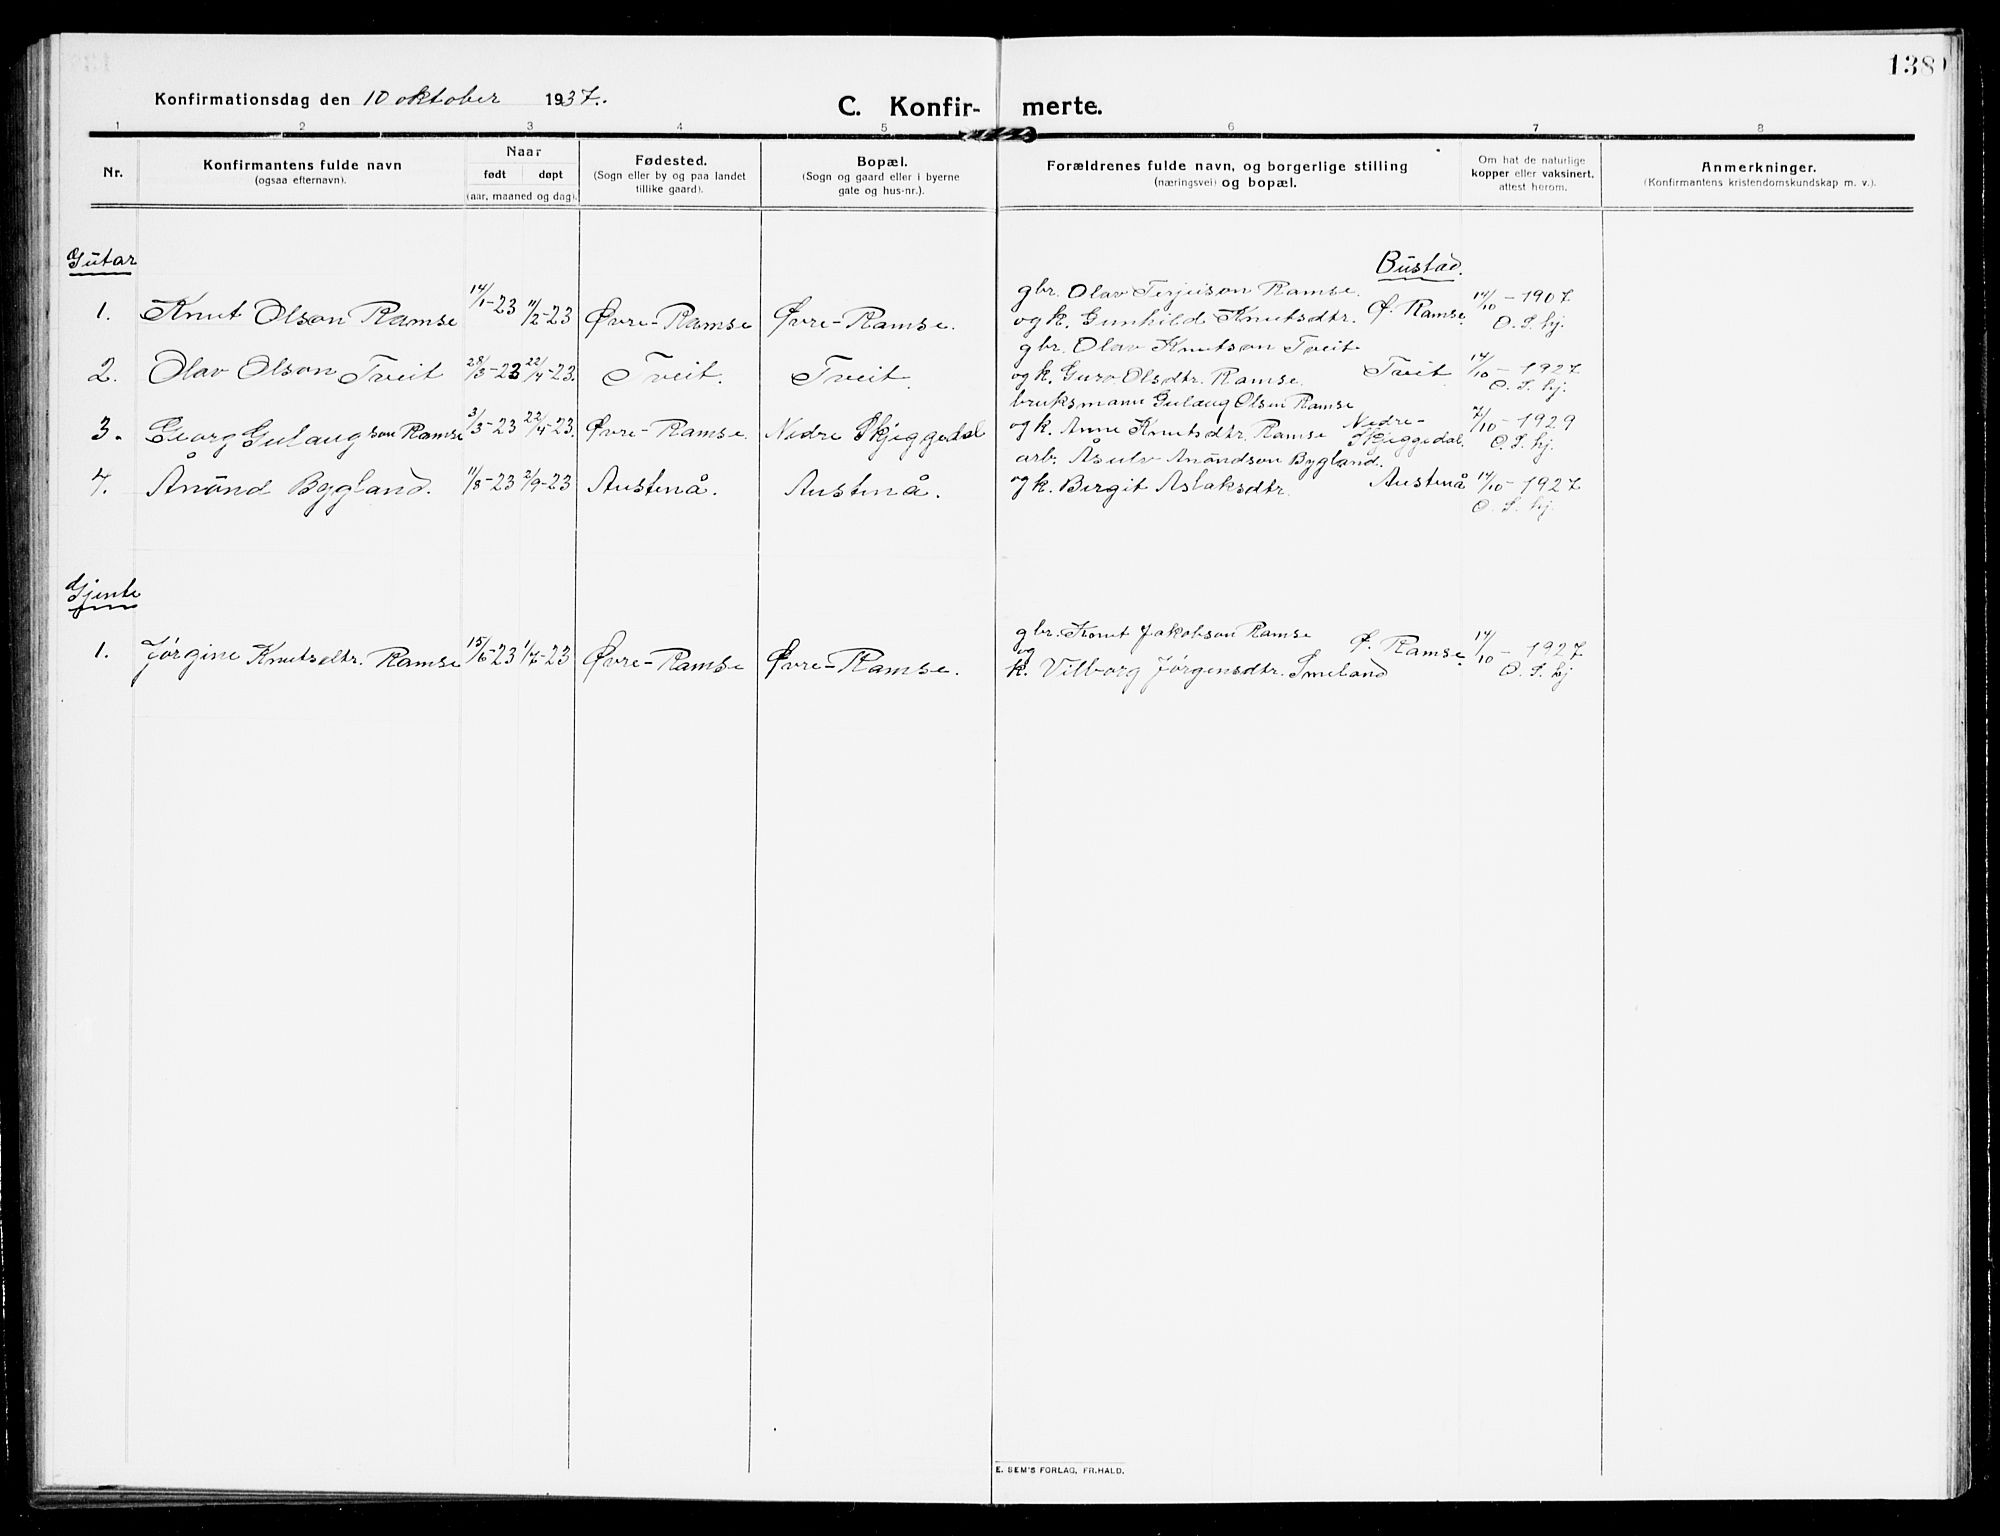 138
Konfirmationsdag den 10 oktober 1937.
C. Konfir- merte.
1 2 3 4 5 6 7 8
Nr.
Konfirmantens fulde navn
(ogsaa efternavn).
Naar
født døpt
(aar, maaned og dag).
Fødested.
(Sogn eller by og paa landet
tillike gaard).
Bopæl.
(Sogn og gaard eller i byerne
gate og hus-nr.).
Forældrenes fulde navn, og borgerlige stilling
(næringsvei) og bopæl.
Om hat de naturlige
kopper eller vaksinert,
attest herom.
Anmerkninger.
(Konfirmantens kristendomskundskap m. v.).
Gutar
Bustad.
1. Knut Olson Ramse 14/1-23 11/2-23 Øvre-Ramse Øvre-Ramse.
gbr. Olav Terjeison Ramse.
og k. Gunhild Knutsdtr. Ø. Ramse. 14/10-1907
O. S. hj.
2. Olav Olson Tveit 28/3-23 22/4-23. Tveit. Tveit.
gbr. Olav Knutson Tveit
og k. Guro Olsdtr. Ramse. Tveit 14/10-1927
O. S. hj.
3. Georg Gulaugson Ramse 3/3-23 22/4-23. Øvre-Ramse. Nedre Skjeggedal
bruksmann Gulaug Olsen Ramse
og k. Anne Knutsdtr. Ramse Nedre-Skjeggedal. 7/10-1929
O. S. hj.
4. Anund Bygland. 11/8-23 2/9-23 Austenå. Austenå.
arb. Åsulv Anundson Bygland.
og k. Birgit Aslaksdtr. Austenå 14/10-1927
O. S. hj.
Gjente
1. Jørgine Knutsdtr. Ramse 15/6-23 1/7-23 Øvre-Ramse Øvre-Ramse.
gbr. Knut Jakobson Ramse
og
k. Vilborg Jørgensdtr. Smeland Ø. Ramse. 14/10-1927
O. S. hj
E. SEM'S FORLAG, FR.HALD.